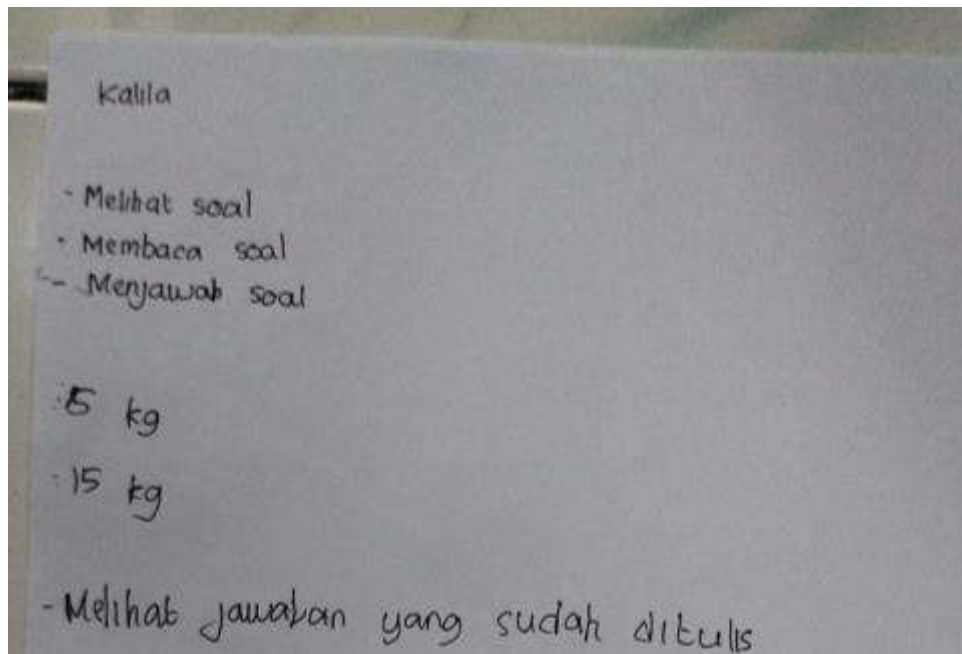 Kalila
- Melihat soal
- Membaca soal
- Menjawab soal
: 5 kg
: 15 kg
- Melihat jawaban yang sudah ditulis